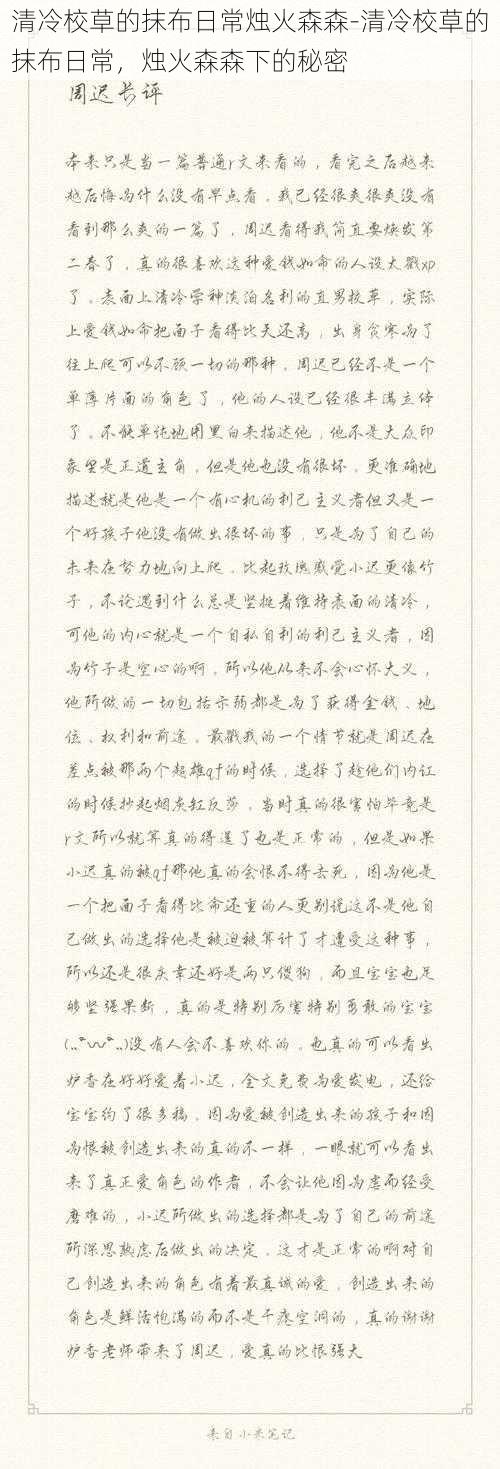 清冷校草的抹布日常烛火森森-清冷校草的
抹布日常，烛火森森下的秘密
周迟长评
本来只是当一篇普通r文来看的，看完之后越来
越后悔为什么没有早点看。我已经很爽很爽没有
看到那么爽的一篇了，周迟看得我简直要焕发第
二春了，真的很喜欢这种爱钱如命的人设大戳xp
了。表面上清冷学神淡泊名利的直男校草，实际
上爱钱如命把面子看得比天还高，出身贫寒为了
往上爬可以不顾一切的那种，周迟已经不是一个
单薄片面的角色了，他的人设已经很丰满立体
了。不能单纯地用黑白来描述他，他不是大众印
象里是正道主角，但是他也没有很坏。更准确地
描述就是他是一个有心机的利己主义者但又是一
个好孩子他没有做出很坏的事，只是为了自己的
未来在努力地向上爬。比起玫瑰感觉小迟更像竹
子，不论遇到什么总是坚挺着维持表面的清冷，
可他的内心就是一个自私自利的利己主义者，因
为竹子是空心的啊。所以他从来不会心怀大义，
他所做的一切包括示弱都是为了获得金钱、地
位、权利和前途。最戳我的一个情节就是周迟在
差点被那两个超雄qf的时候，选择了趁他们内讧
的时候抄起烟灰缸反杀，当时真的很害怕毕竟是
r文所以就算真的得逞了也是正常的，但是如果
小迟真的被qf那他真的会恨不得去死，因为他是
一个把面子看得比命还重的人更别说这不是他自
己做出的选择他是被迫被算计了才遭受这种事，
所以还是很庆幸还好是两只傻狗，而且宝宝也足
够坚强果断，真的是特别厉害特别勇敢的宝宝
(„ᵕᴗᵕ„)没有人会不喜欢你的。也真的可以看出
炉香在好好爱着小迟，全文免费为爱发电，还给
宝宝约了很多稿。因为爱被创造出来的孩子和因
为恨被创造出来的真的不一样，一眼就可以看出
来了真正爱角色的作者，不会让他因为虐而经受
磨难的，小迟所做出的选择都是为了自己的前途
所深思熟虑后做出的决定。这才是正常的啊对自
己创造出来的角色有着最真诚的爱，创造出来的
角色是鲜活饱满的而不是干瘪空洞的，真的谢谢
炉香老师带来了周迟，爱真的比恨强大
来自小米笔记